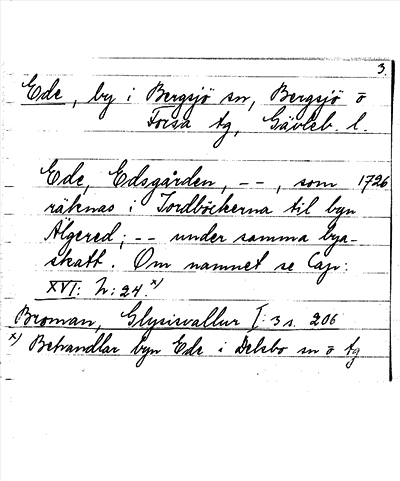 3.
Ede, by i Bergsjö sn, Bergsjö o
Forsa tg, Gävleb. l.
Ede, Edsgården, --, som 1726
räknas i Jordböckerna til byn
Älgered; -- under samma bya-
skatt. Om namnet se Cap:
XVI: N: 24 x)
Broman, Glysisvallur I: 3 s. 206
x) Behandlar byn Ede i Delsbo sn o tg